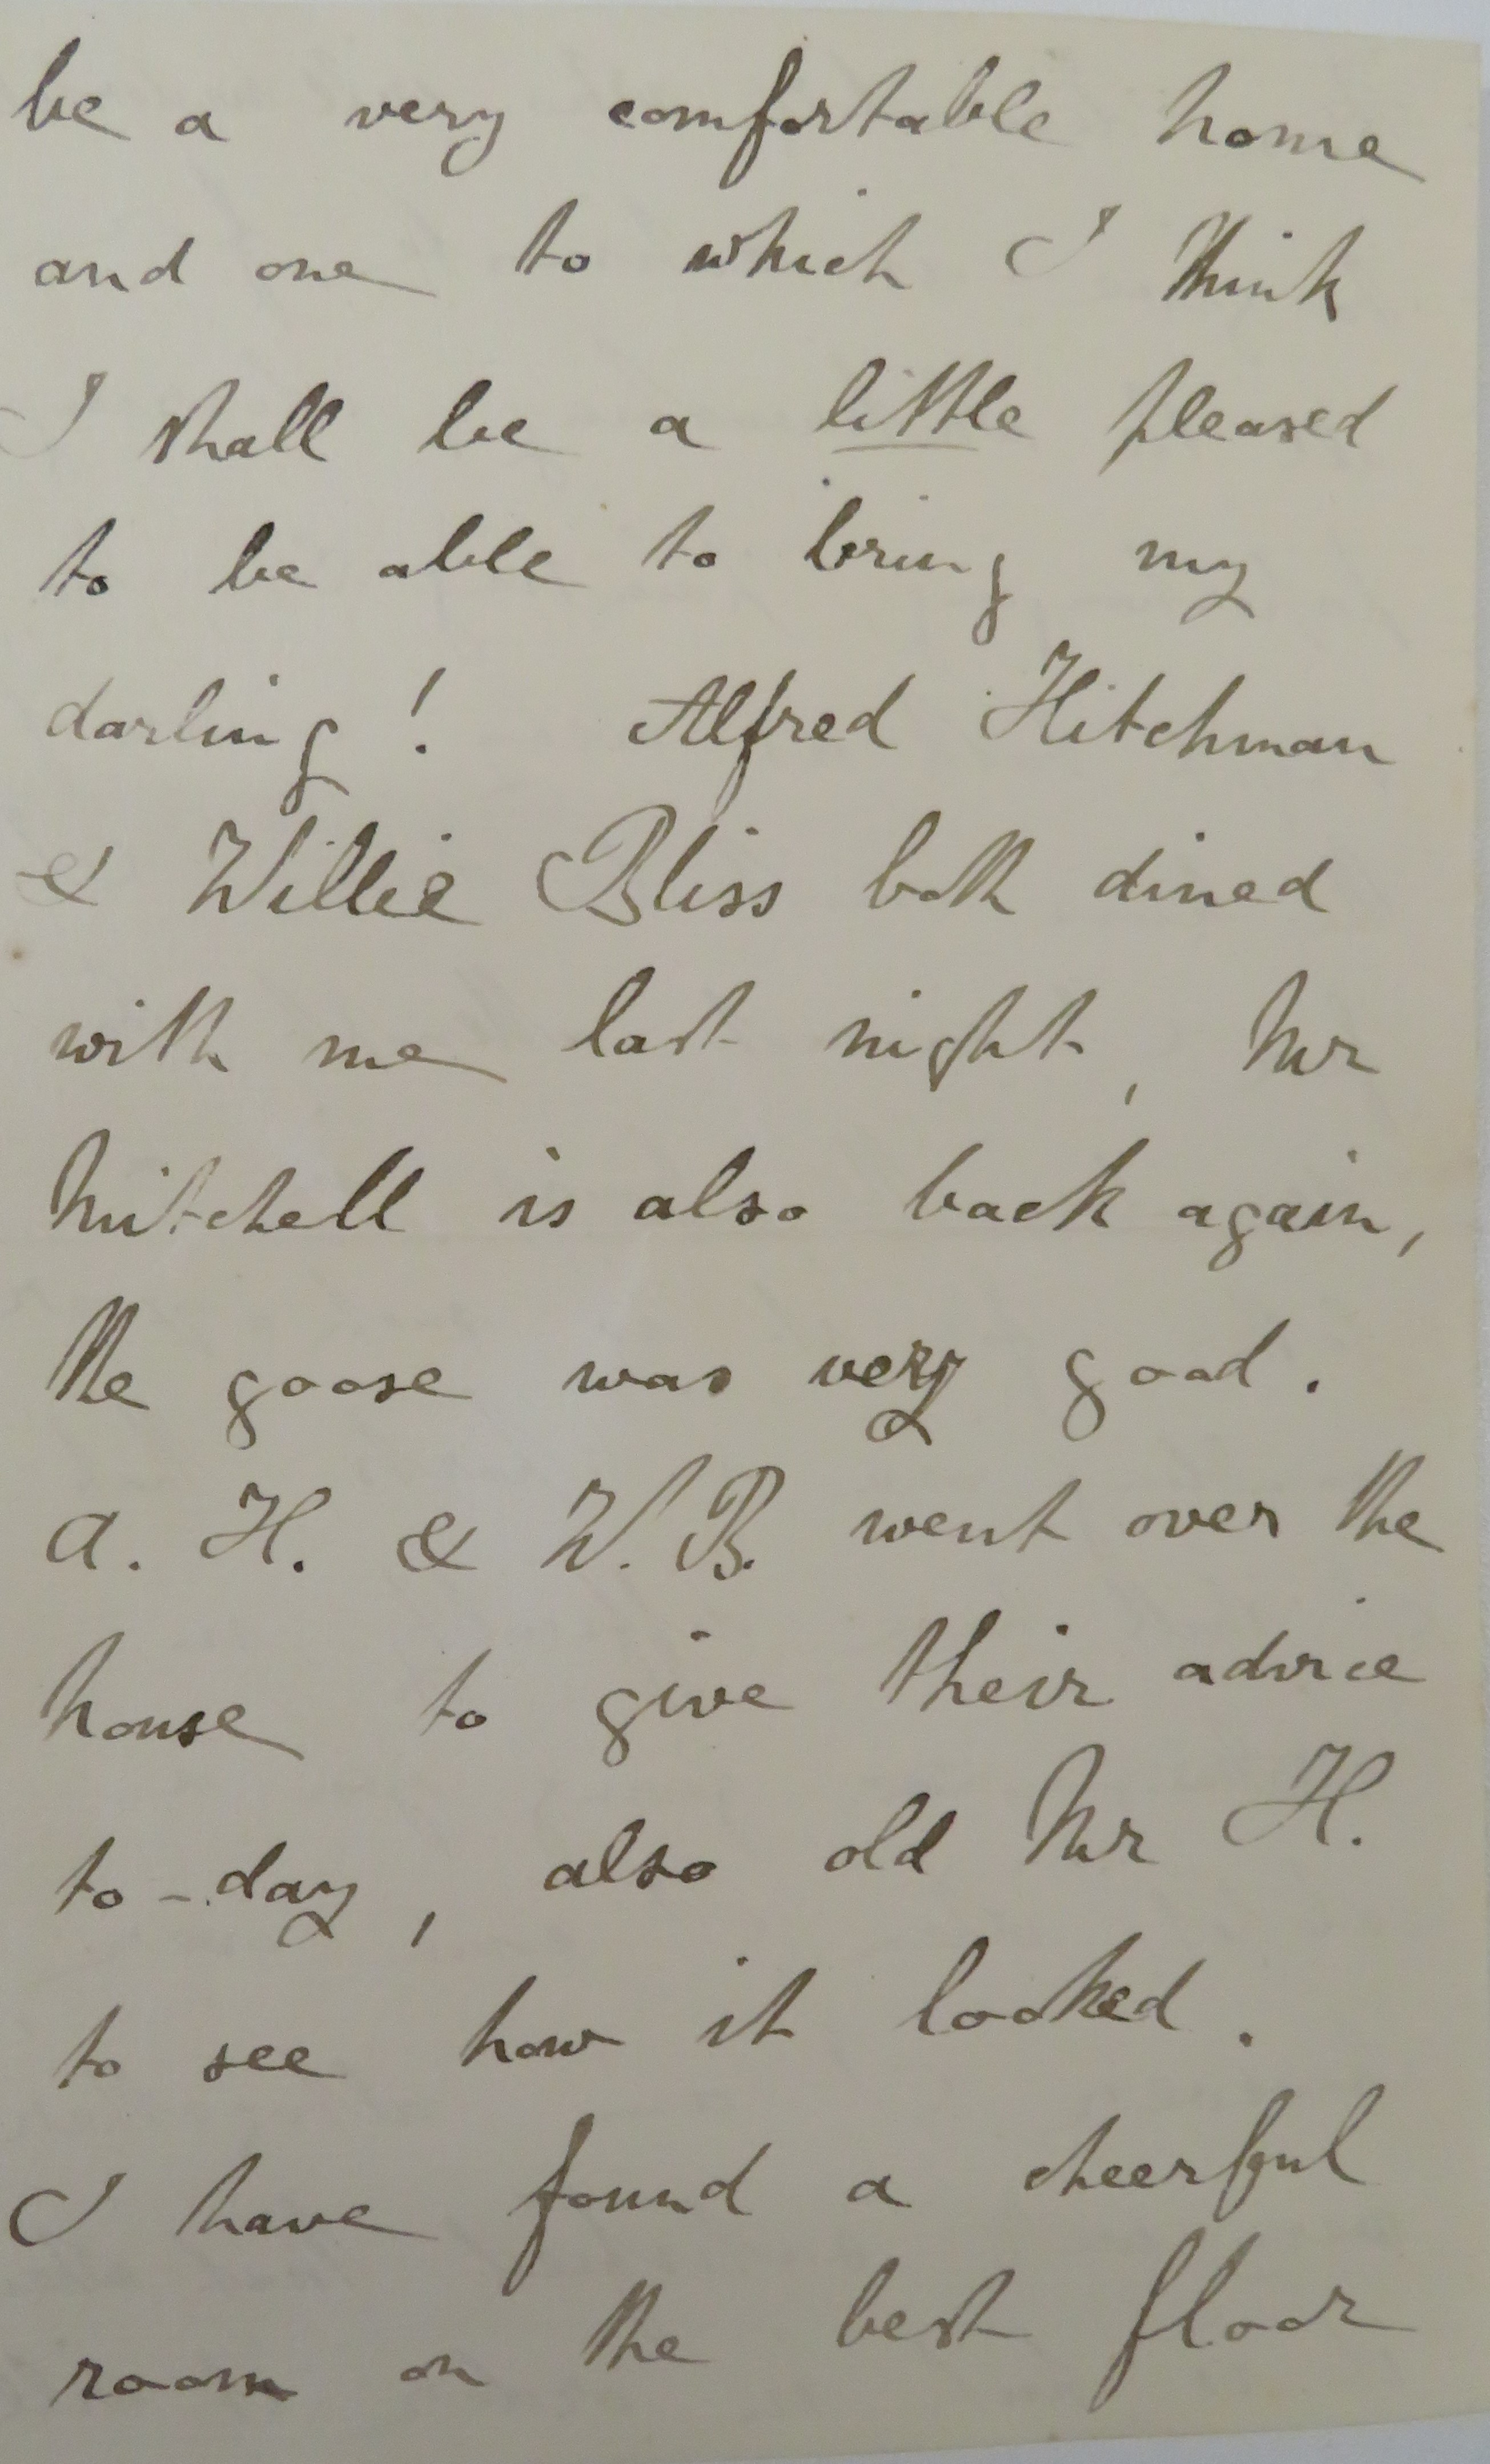 be a very comfortable home
and one to which I think
I shall be a little pleased
to be able to bring my
darling! Alfred Hitchman
& Willie Bliss both dined
with me last night, Mr
Mitchell is also back again,
the goose was very good.
A. H. & W. B. went over the
house to give their advice
to-day, also old Mr H.
to see how it looked.
I have found a cheerful
room on the best floor